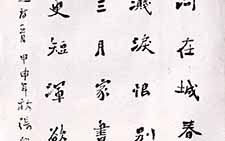 河在城春
濺淚恨別
三月家書
更短渾欲
甲申年秋張